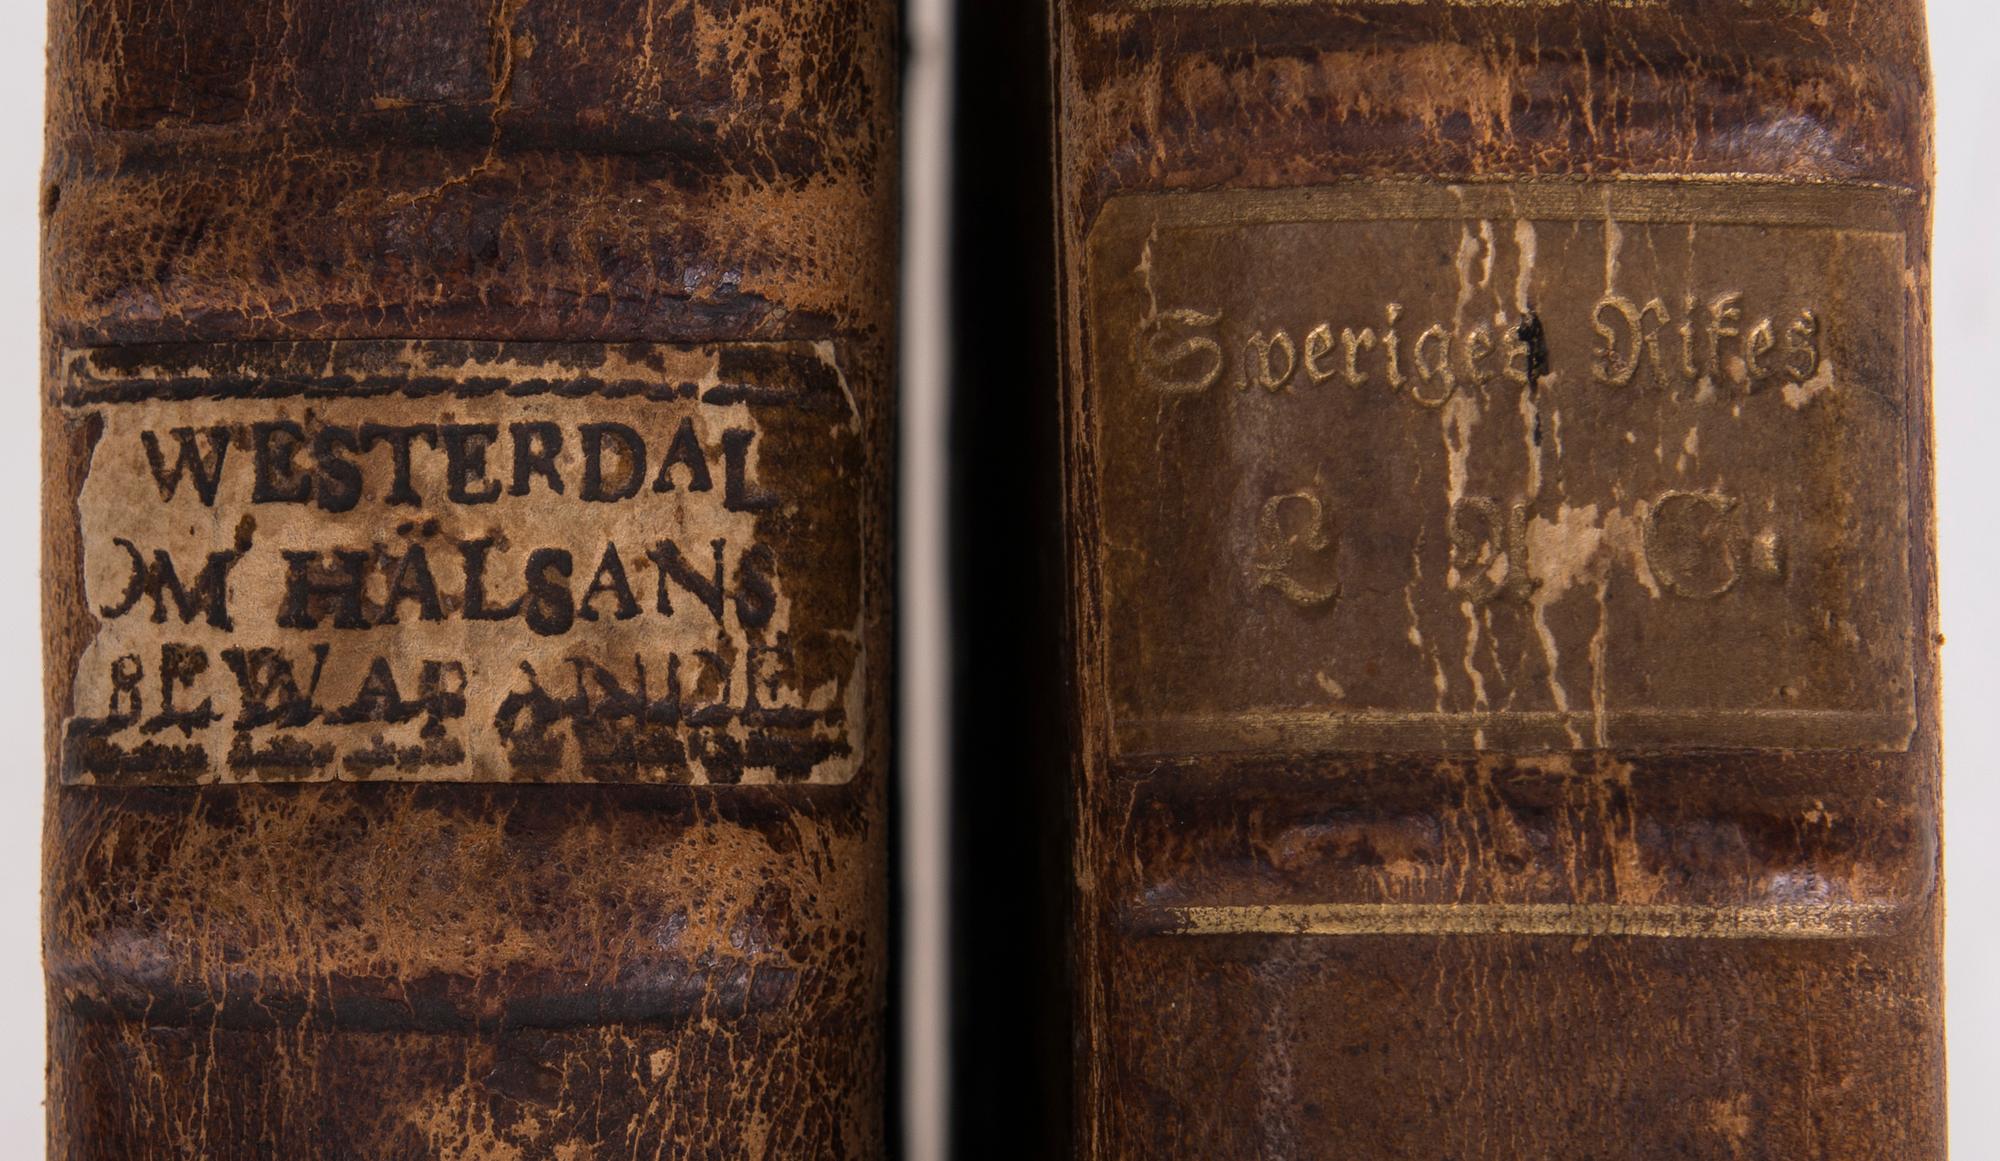 WESTERDAL
OM HÄLSANS
BEWARANDE
Sweriges Rikes
L A G.